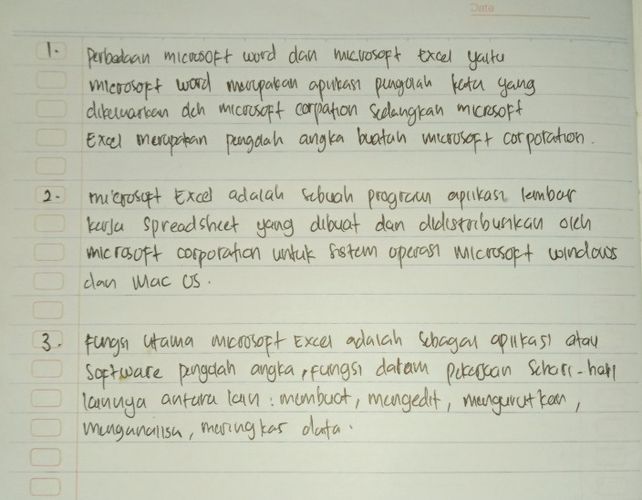 Date
1. Perbedaan microsoft word dan microsoft Excel yaitu
microsoft word merupakan aplikasi pengolah kata yang
dikeluarkan oleh microsoft corpation sedangkan microsoft
Excel merupakan pengolah angka buatan microsoft corporation.
2. microsoft Excel adalah sebuah program aplikasi lembar
kerja spreadsheet yang dibuat dan didistribusikan oleh
microsoft corporation untuk sistem operasi microsoft windows
dan Mac OS.
3. Fungsi utama microsoft Excel adalah sebagai aplikasi atau
software pengolah angka, fungsi dalam pekerjaan sehari-hari
lainnya antara lain : membuat, mengedit, mengurutkan,
menganalisa, meringkas data.